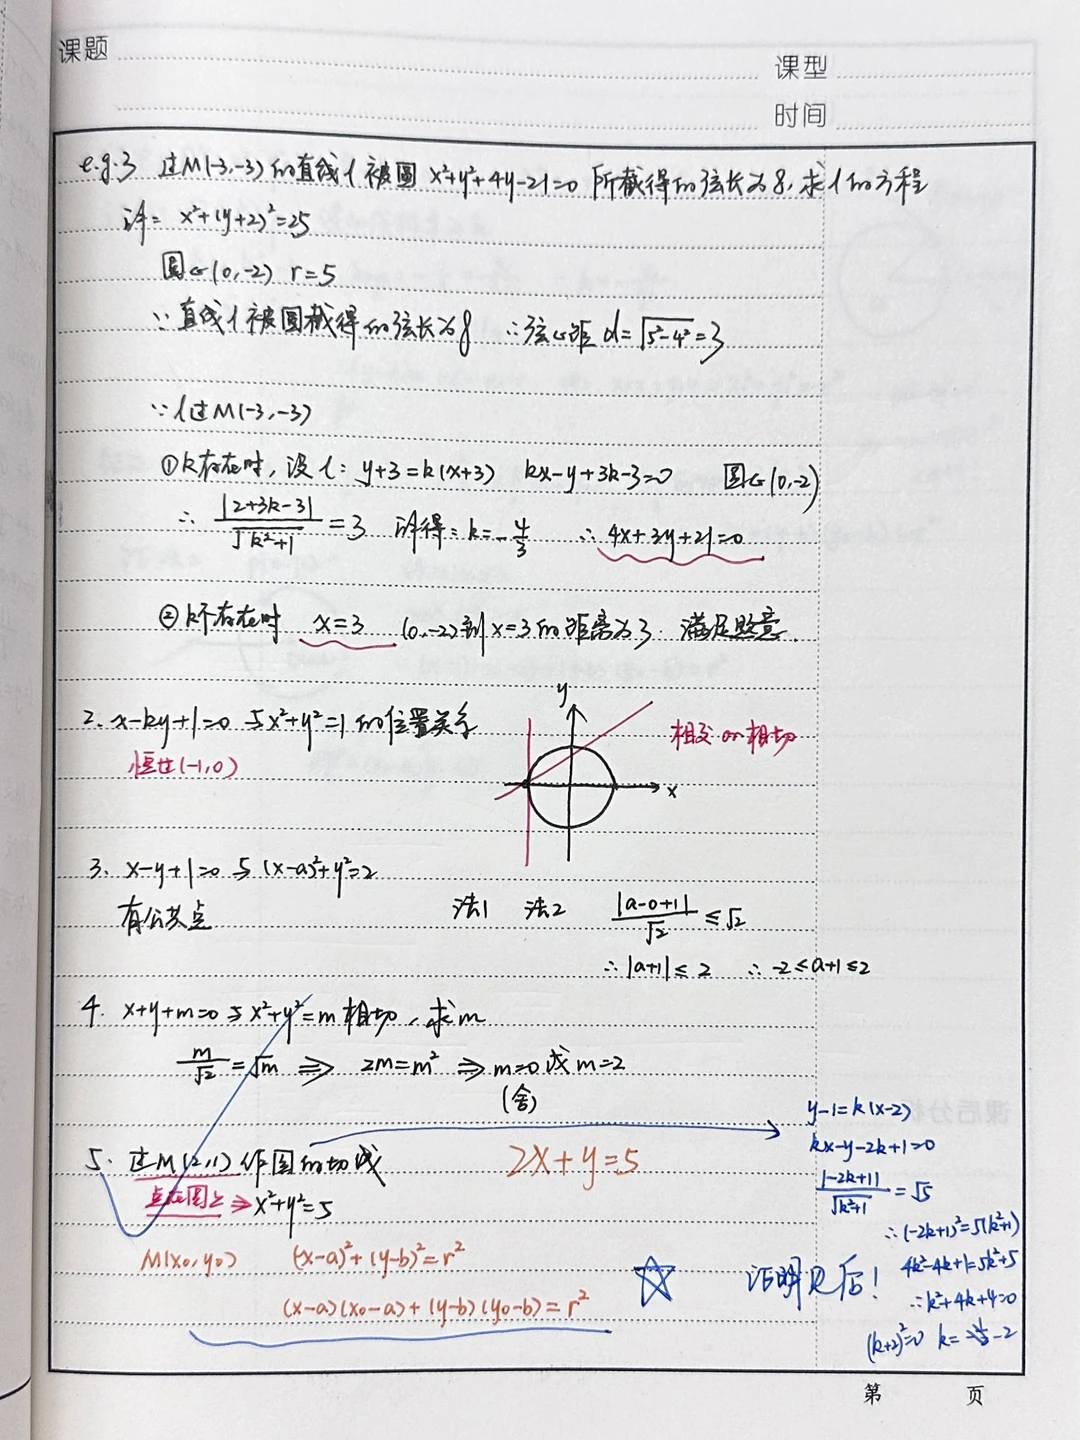 课题
课型
时间
e.g.3 过M(-3,-3)的直线l被圆 x²+y²+4y-21=0 所截得的弦长为8,求l的方程
解: x²+(y+2)²=25
圆心(0,-2) r=5
∵直线l被圆截得的弦长为8 ∴弦心距 d=√(5²-4²)=3
∵l过M(-3,-3)
①k存在时,设l: y+3=k(x+3) kx-y+3k-3=0 圆心(0,-2)
∴ |2+3k-3|/√(k²+1)=3 解得:k=-4/3 ∴4x+3y+21=0
②k不存在时 x=3 (0,-2)到x=3的距离为3. 满足题意.
2. x-ky+1=0与x²+y²=1的位置关系
恒过(-1,0)
y
x
相交 or 相切
3. x-y+1=0与(x-a)²+y²=2
有公共点 法1 法2 |a-0+1|/√2≤√2
∴|a+1|≤2 ∴-2≤a+1≤2
4. x+y+m=0与x²+y²=m相切,求m
m/√2=√m ⇒ 2m=m² ⇒m=0或m=2
(舍)
5. 过M(2,1)作圆的切线 2x+y=5
点在圆上⇒x²+y²=5
M(x₀,y₀) (x-a)²+(y-b)²=r²
(x-a)(x₀-a)+(y-b)(y₀-b)=r²
☆ 证明见后!
y-1=k(x-2)
kx-y-2k+1=0
|-2k+1|/√(k²+1)=√5
∴(-2k+1)²=5(k²+1)
4k²-4k+1=5k²+5
∴k²+4k+4=0
(k+2)²=0 k=-2
第 页